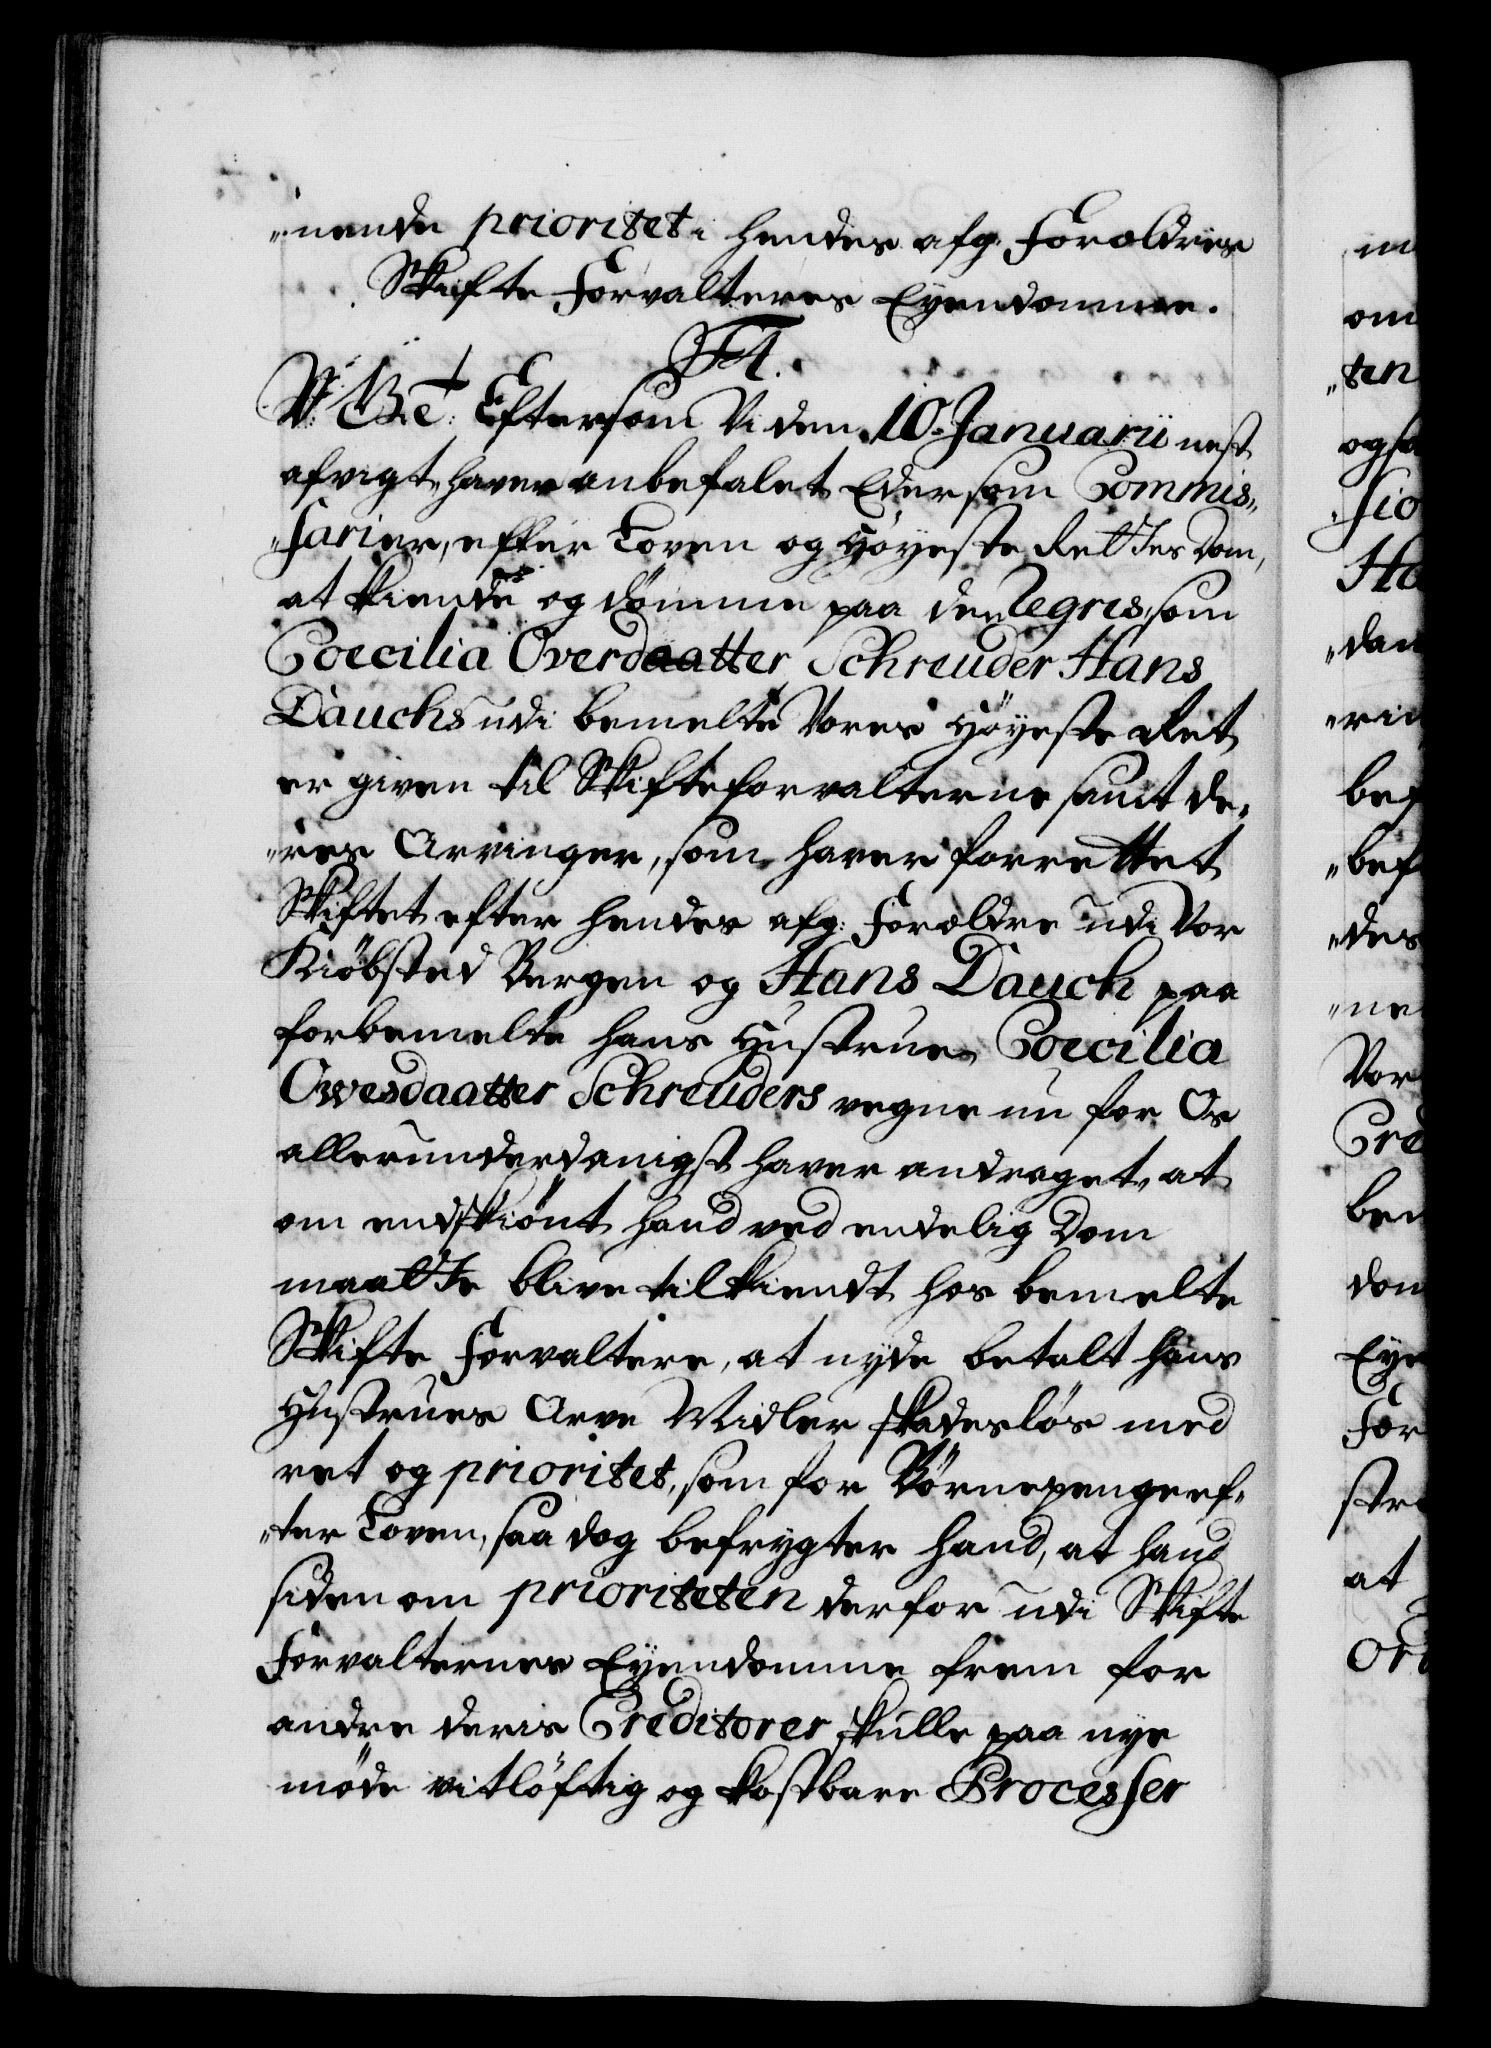 „nende prioritet i hendes afg. Forældres
Skifte Forvalteres Eyendomme.
F4.
V: B: G: Eftersom Vi den 10. Januarii nest
afvigt haver anbefalet Eder som Commis„
„sarier, efter Loven og Høyeste Rettes Dom,
at kiende og dømme paa de Regris, som
Coecilia Overdaatter Schreuder Hans
Dauchs udi bemelte Vores Høyeste Ret
er given til Skifteforvalterne samt de„
„res Arvinger, som haver forrettet
Skiftet efter hendes afg: Forældre udi Vor
Kiøbsted Bergen og Hans Dauch paa
forbemelte hans Hustrue Coecilia
Owesdaatter Schreuders vegne nu for Os
allerunderdanigst haver andraget, at
om endskiønt hand ved endelig Dom
maatte blive tilkiendt hos bemelte
Skifte Forvaltere, at nyde betalt hans
Hustrues Arve Midler skadesløs med
ret og prioritet, som for Børnepenge ef„
„ter Loven, saa dog befrygter hand, at hand
siden om prioriteten derfor udi Skifte
Forvalternes Eyendomme frem for
andre deris Creditorer skulle paa nye
møde vitløftig og kostbare Processer